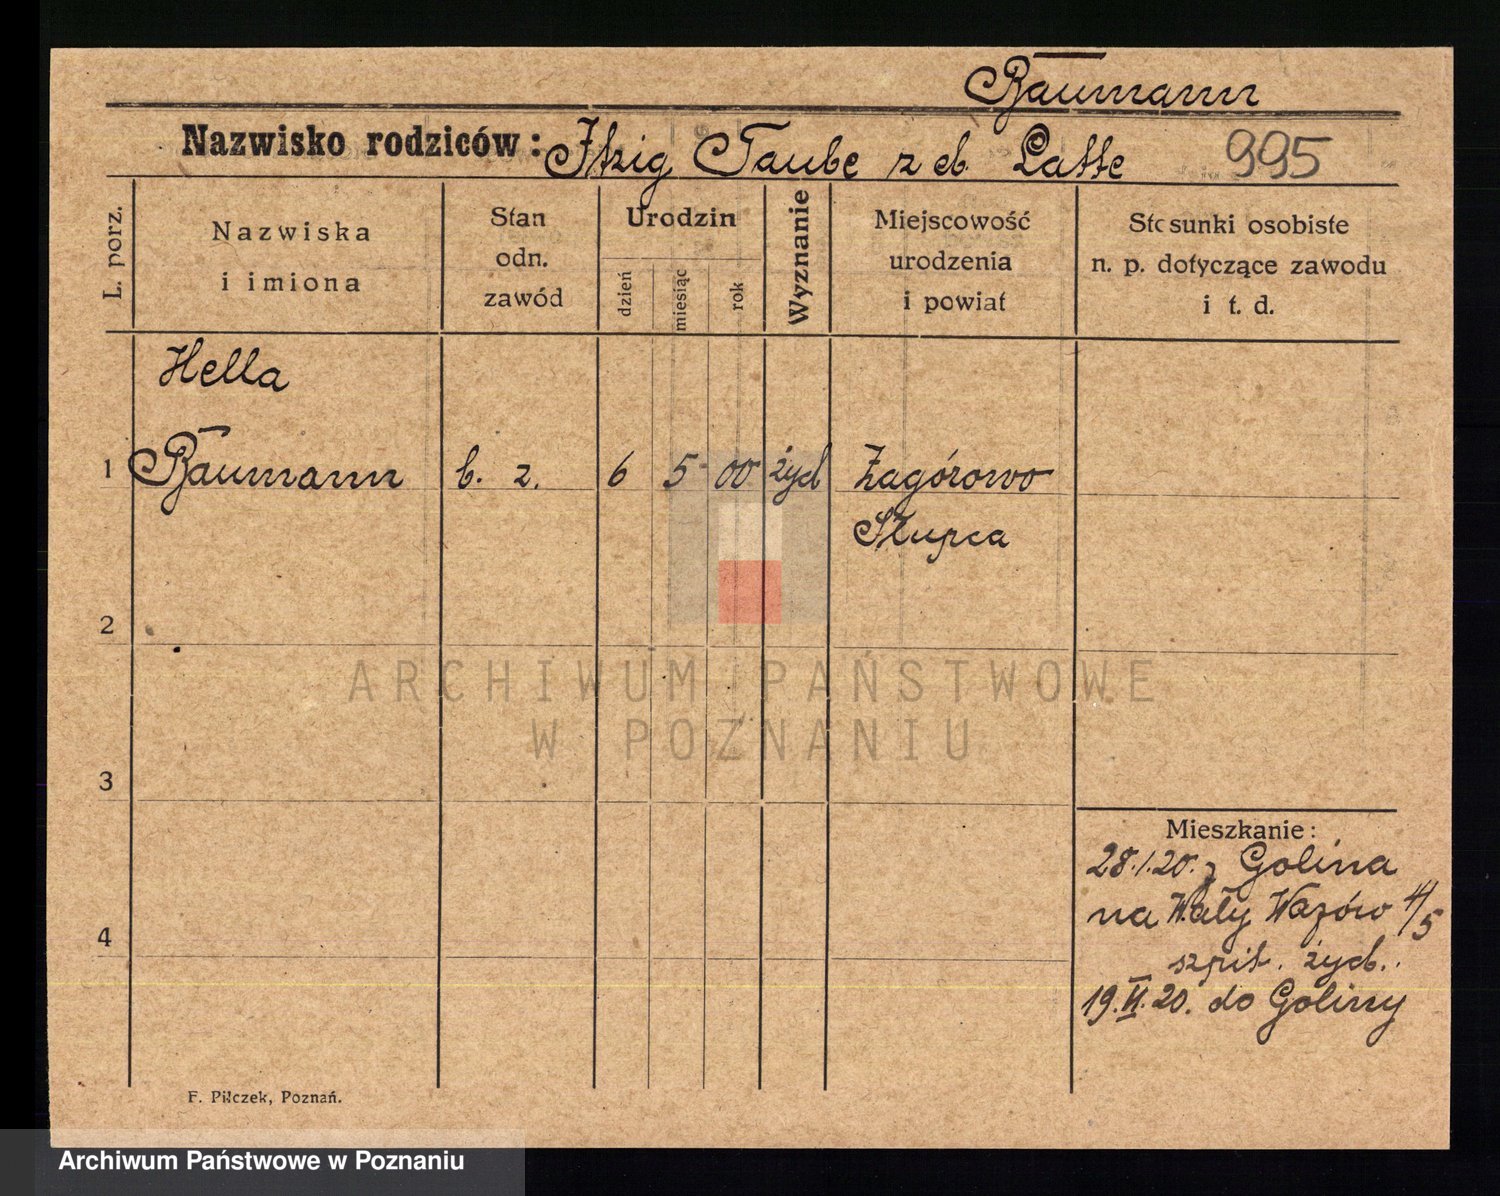 Baumann
Nazwisko rodziców: Itzig Taube z d. Latte 995
L. porz.
Nazwiska
i imiona
Stan
odn.
zawód
Urodzin
dzień
miesiąc
rok
Wyznanie
Miejscowość
urodzenia
i powiat
Stosunki osobiste
n. p. dotyczące zawodu
i t. d.
Hella
1 Baumann b. z. 6 5 00 żyd Zagórowo
Słupca
2
3
4
Mieszkanie:
28.1.20. z Golina
na Wały Wazów 4/5
szpit. żyd.
19.VI.20. do Goliny
F. Pilczek, Poznań.
ARCHIWUM PAŃSTWOWE
W POZNANIU
Archiwum Państwowe w Poznaniu